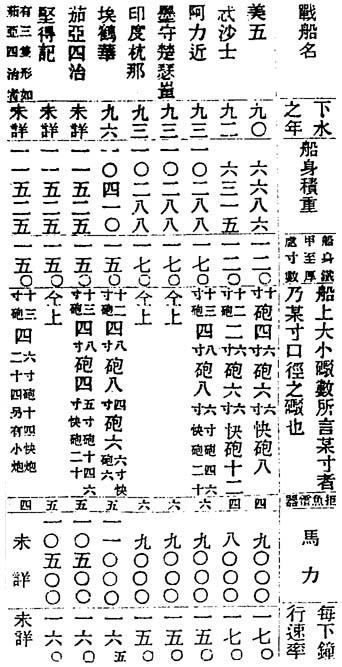 戰船名 下水之年 船身積重 船身鐵甲至厚處寸數 船上大小礮數所言某寸者乃某寸口徑之礮也 拒魚雷器 馬力 每下鐘行速率
美五 九〇 六六八六 一二〇 十寸砲四 六寸砲六 快砲八 四 九〇〇〇 一七〇
忒沙士 九二 六三一五 一二〇 十二寸砲二 六寸砲六 快砲十二 四 八〇〇〇 一七〇
阿力近 九三 一〇二八八 一七〇 十三寸砲四 八寸砲八 六寸砲四 六 九〇〇〇 一五〇
墨守楚瑟崖 九三 一〇二八八 一七〇 仝上 六 九〇〇〇 一五〇
印度枕那 九三 一〇二八八 一七〇 仝上 六 九〇〇〇 一五〇
埃鶴華 九六 一〇四一〇 一五〇 十二寸砲四 八寸砲八 四寸砲六 六寸快砲六 五 一一〇〇〇 一六五
茄亞四治 未詳 一一五二五 一五〇 十三寸砲四 八寸砲四 五寸砲十四 六寸快砲二十 五 一〇五〇〇 一六〇
堅得記 未詳 一一五二五 一五〇 仝上 五 一〇五〇〇 一六〇
有三隻形如茄亞四治者 未詳 一一五二五 一五〇 十三寸砲四 六寸砲十四 快炮二十四另有小炮 四 未詳 未詳